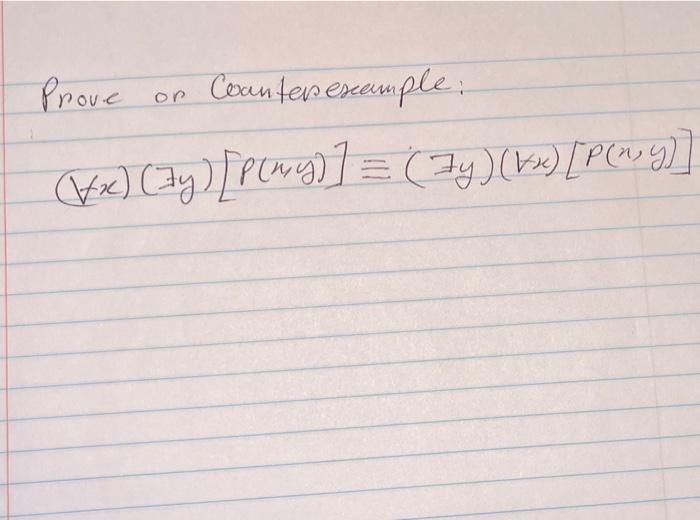 Prove or Counterexample:
(∀x)(∃y)[P(x,y)] ≡ (∃y)(∀x)[P(x,y)]